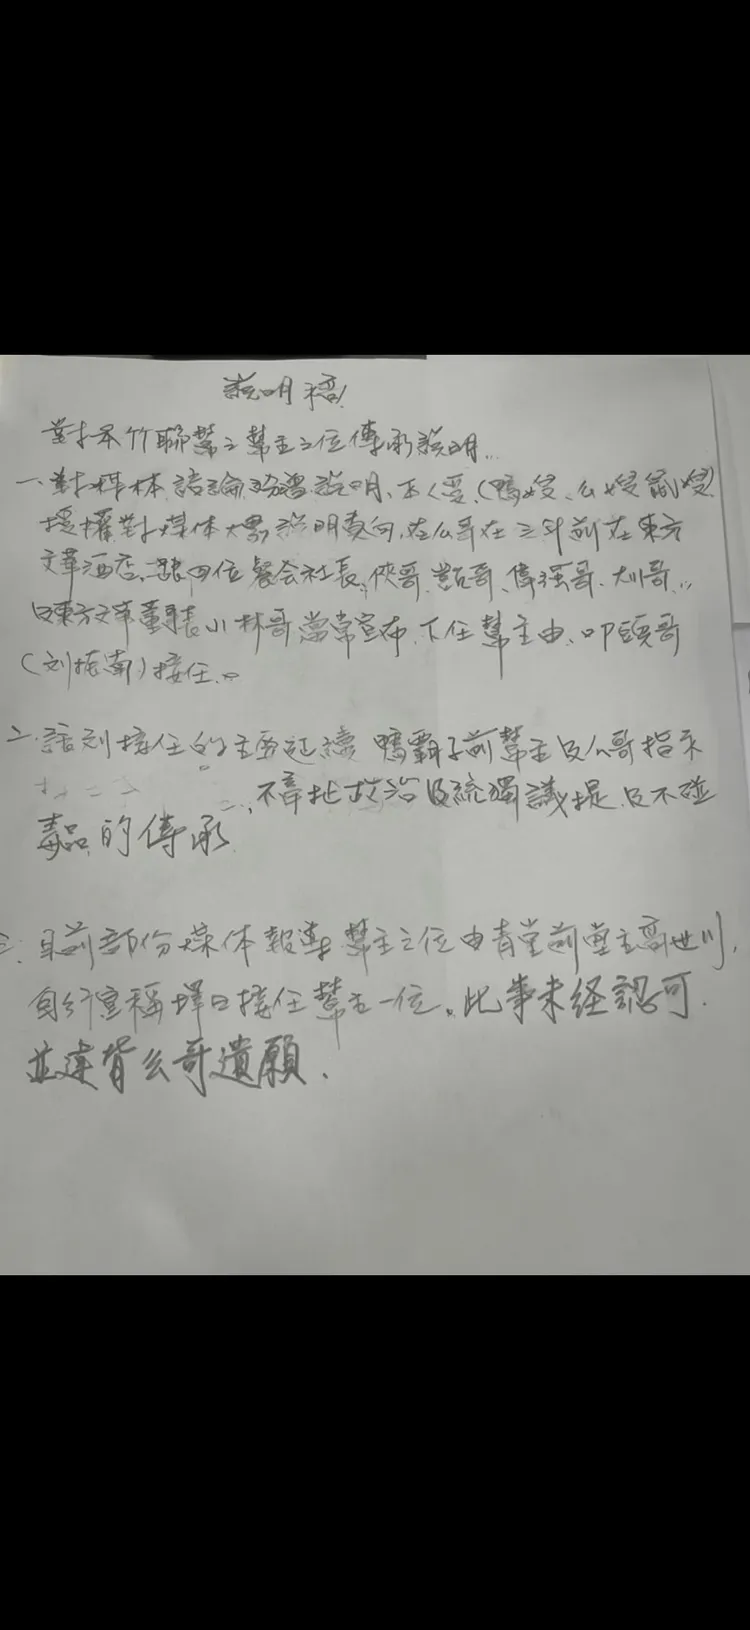 說明稿
對於本竹聯幫之幫主之位傳承說明...
一、對 本 說明、本人受（鴨嫂、么嫂
授權對媒体大眾說明真向，在么哥在三年前在東方
文華酒店 四位 会社長、俠哥、哥、偉強哥、大川哥...
及東方文華董事長小林哥當常宣布，下任幫主由叩頭哥
（刘振南）接任。
二、 接任的主要 鴨霸子前幫主及么哥指示
不牽扯政治及統獨議提，及不碰
毒品的傳承
三、目前部份媒体報導幫主之位由青堂前堂主高世川，
自行宣稱擇日接任幫主一位。此事未経認可
並違背么哥遺願．